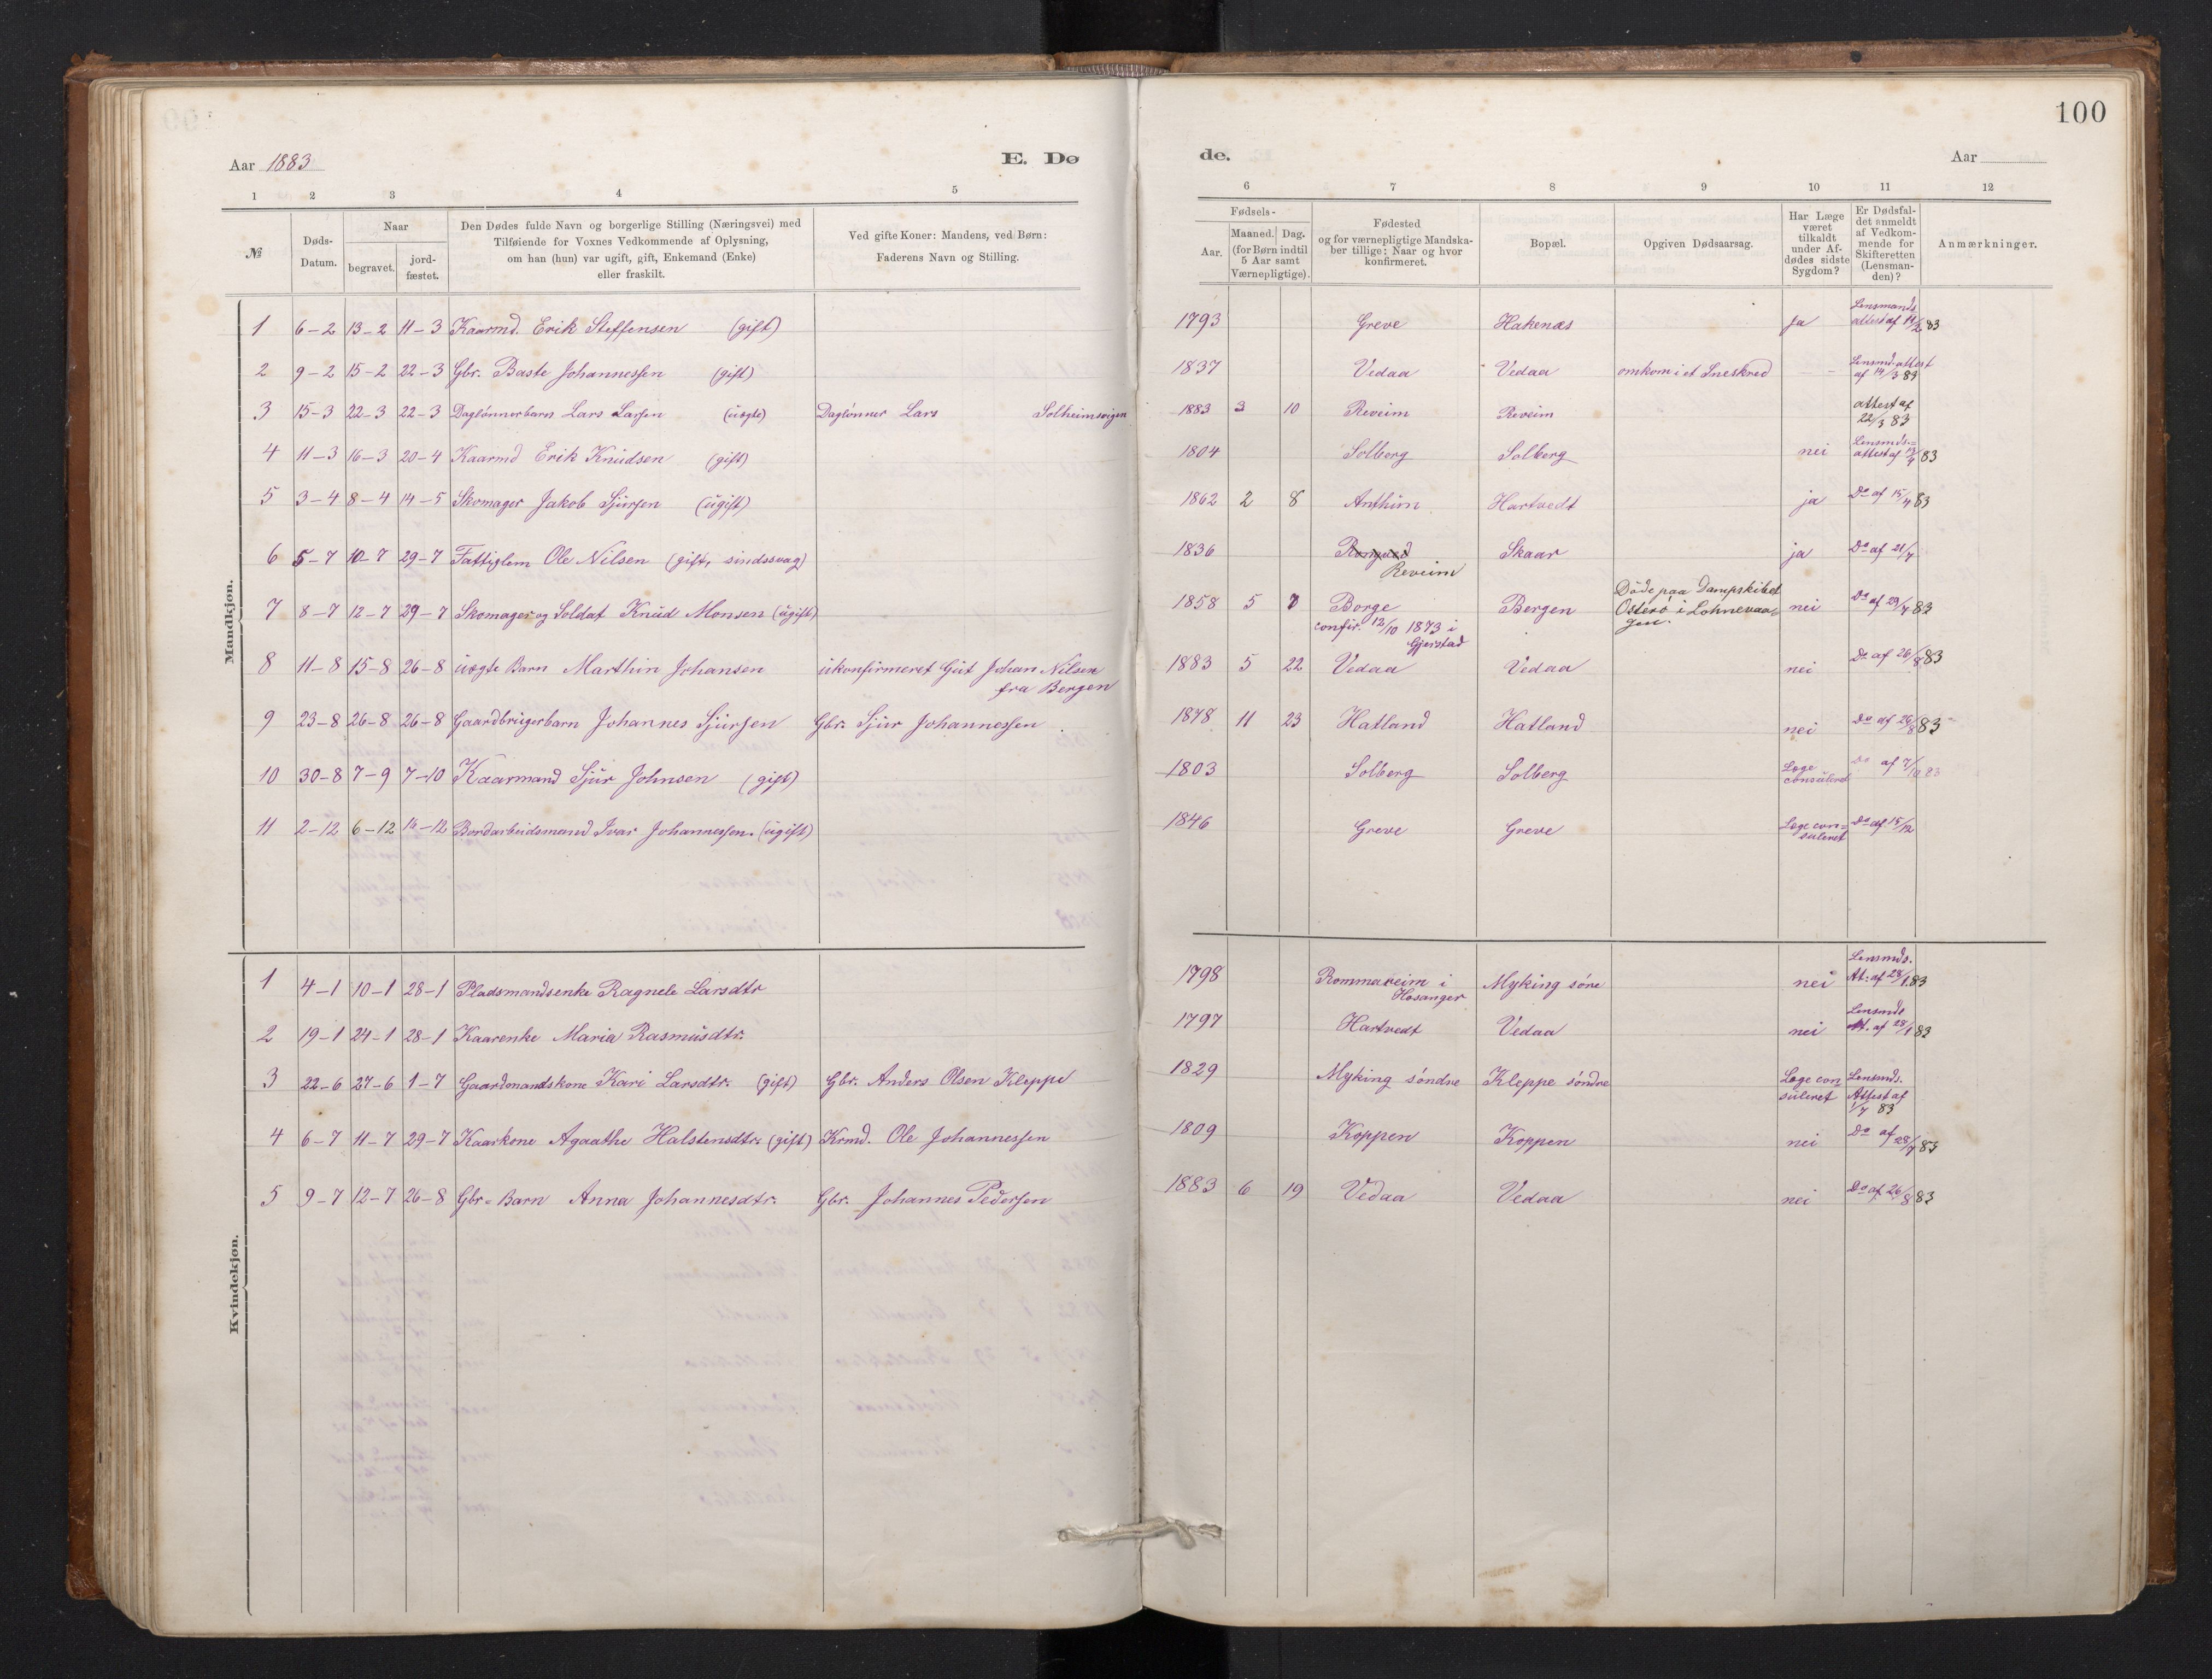 100
Aar 1883
E. Dø
de.
Aar
1 2 3 4 5
6 7 8 9 10 11 12
№
Døds-
Datum.
Naar
begravet.
jord-
fæstet.
Den Dødes fulde Navn og borgerlige Stilling (Næringsvei) med
Tilføiende for Voxnes Vedkommende af Oplysning,
om han (hun) var ugift, gift, Enkemand (Enke)
eller fraskilt.
Ved gifte Koner: Mandens, ved Børn:
Faderens Navn og Stilling.
Fødsels-
Aar.
Maaned. Dag.
(for Børn indtil
5 Aar samt
Værnepligtige).
Fødested
og for værnepligtige Mandska-
ber tillige: Naar og hvor
konfirmeret.
Bopæl.
Opgiven Dødsaarsag.
Har Læge
været
tilkaldt
under Af-
dødes sidste
Sygdom?
Er Dødsfal-
det anmeldt
af Vedkom-
mende for
Skifteretten
(Lensman-
den)?
Anmærkninger.
Mandkjøn.
1 6-2 13-2 11-3 Kaarmd. Erik Steffensen (gift) 1793 Greve Hakenæs ja Lensmands
attest af 14/2 83
2 9-2 15-2 22-3 Gbr. Baste Johannessen (gift) 1837 Vedaa Vedaa omkom i et Sneskred Lensmd. attest
af 14/3 83
3 15-3 22-3 22-3 Daglønnerbarn Lars Larsen (uægte) Daglønner Lars Solheimsvigen 1883 3 10 Reveim Reveim attest af
22/3 83
4 11-3 16-3 20-4 Kaarmd Erik Knudsen (gift) 1804 Solberg Solberg nei Lensmds.=
attest af 83
5 3-4 8-4 14-5 Skomager Jakob Sjursen (ugift) 1862 2 8 Anthun Hartvedt ja Do af 15/4 83
6 5-7 10-7 29-7 Fattiglem Ole Nilsen (gift, sindssvag) 1836 Reveim Skaar ja Do af 21/7
7 8-7 12-7 29-7 Skomager og Soldat Knud Monsen (ugift) 1858 5 7 Borge
confir. 12/10 1873 i
Gjerstad
Bergen Døde paa Dampskibet
Osterø i Lohnevaa=
gen. nei Do af 29/7 83
8 11-8 15-8 26-8 uægte Barn Marthin Johansen ukonfirmeret Gut Johan Nilsen
fra Bergen 1883 5 22 Vedaa Vedaa nei Do. af 26/8 83
9 23-8 26-8 26-8 Gaardbrugerbarn Johannes Sjursen Gbr. Sjur Johannessen 1878 11 23 Hatland Hatland nei Do af 26/8 83
10 30-8 7-9 7-10 Kaarmand Sjur Johnsen (gift) 1803 Solberg Solberg Læge
consuleret Do af 7/10 83
11 2-12 6-12 16-12 Bordarbeidsmand Ivar Johannessen. (ugift) 1846 Greve Greve Læge con=
suleret Do af 15/12
Kvindekjøn.
1 4-1 10-1 28-1 Pladsmandsenke Ragnele Larsdtr 1798 Rommareim i
Hosanger Myking søre nei Lensmds.
At: af 28/1 83
2 19-1 24-1 28-1 Kaarenke Maria Rasmusdtr. 1797 Hartvedt Vedaa nei Lensmds
At. af 28/1 83
3 22-6 27-6 1-7 Gaardmandskone Kari Larsdtr. (gift) Gbr. Anders Olsen Kleppe 1829 Myking søndre Kleppe søndre Læge con
suleret Lensmds.
Attest af
1/7 83
4 6-7 11-7 29-7 Kaarkone Agaathe Halstensdtr. (gift) Krmd. Ole Johannessen 1809 Koppen Koppen nei Do af 28/7 83
5 9-7 12-7 26-8 Gbr=Barn Anna Johannesdtr. Gbr. Johannes Pedersen 1883 6 19 Vedaa Vedaa nei Do af 26/8 83